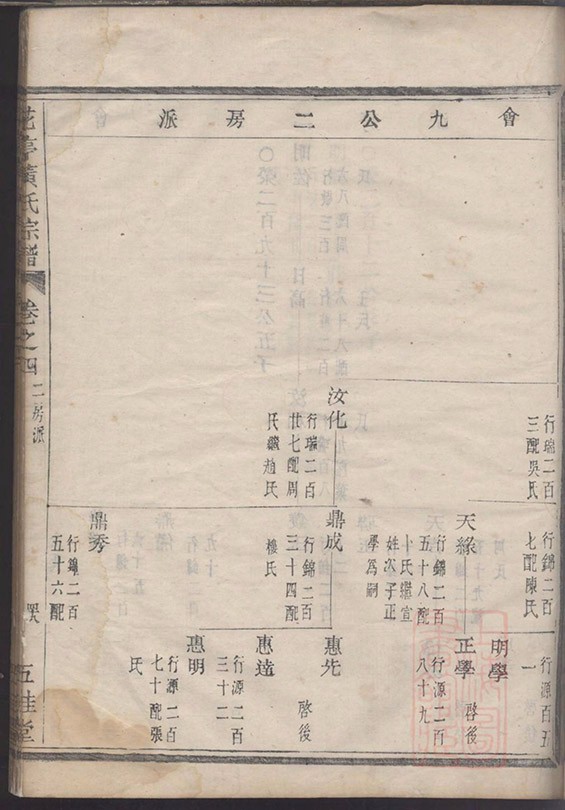 會九公二房派
行瑞二百
三配吳氏
汝化
行瑞二百
廿七配周
氏繼趙氏
行錦二百
七配陳氏
天緣
行錦二百
五十八配
卜氏繼宣
姓次子正
學為嗣
鼎成
行錦二百
三十四配
樓氏
鼎秀
行錦二百
五十六配
行源百五
一
明學
啓後
正學
行源二百
八十九
惠先
啓後
惠達
行源二百
三十二
惠明
行源二百
七十配張
氏
花亭黃氏宗譜
卷之四
二房派
五桂堂